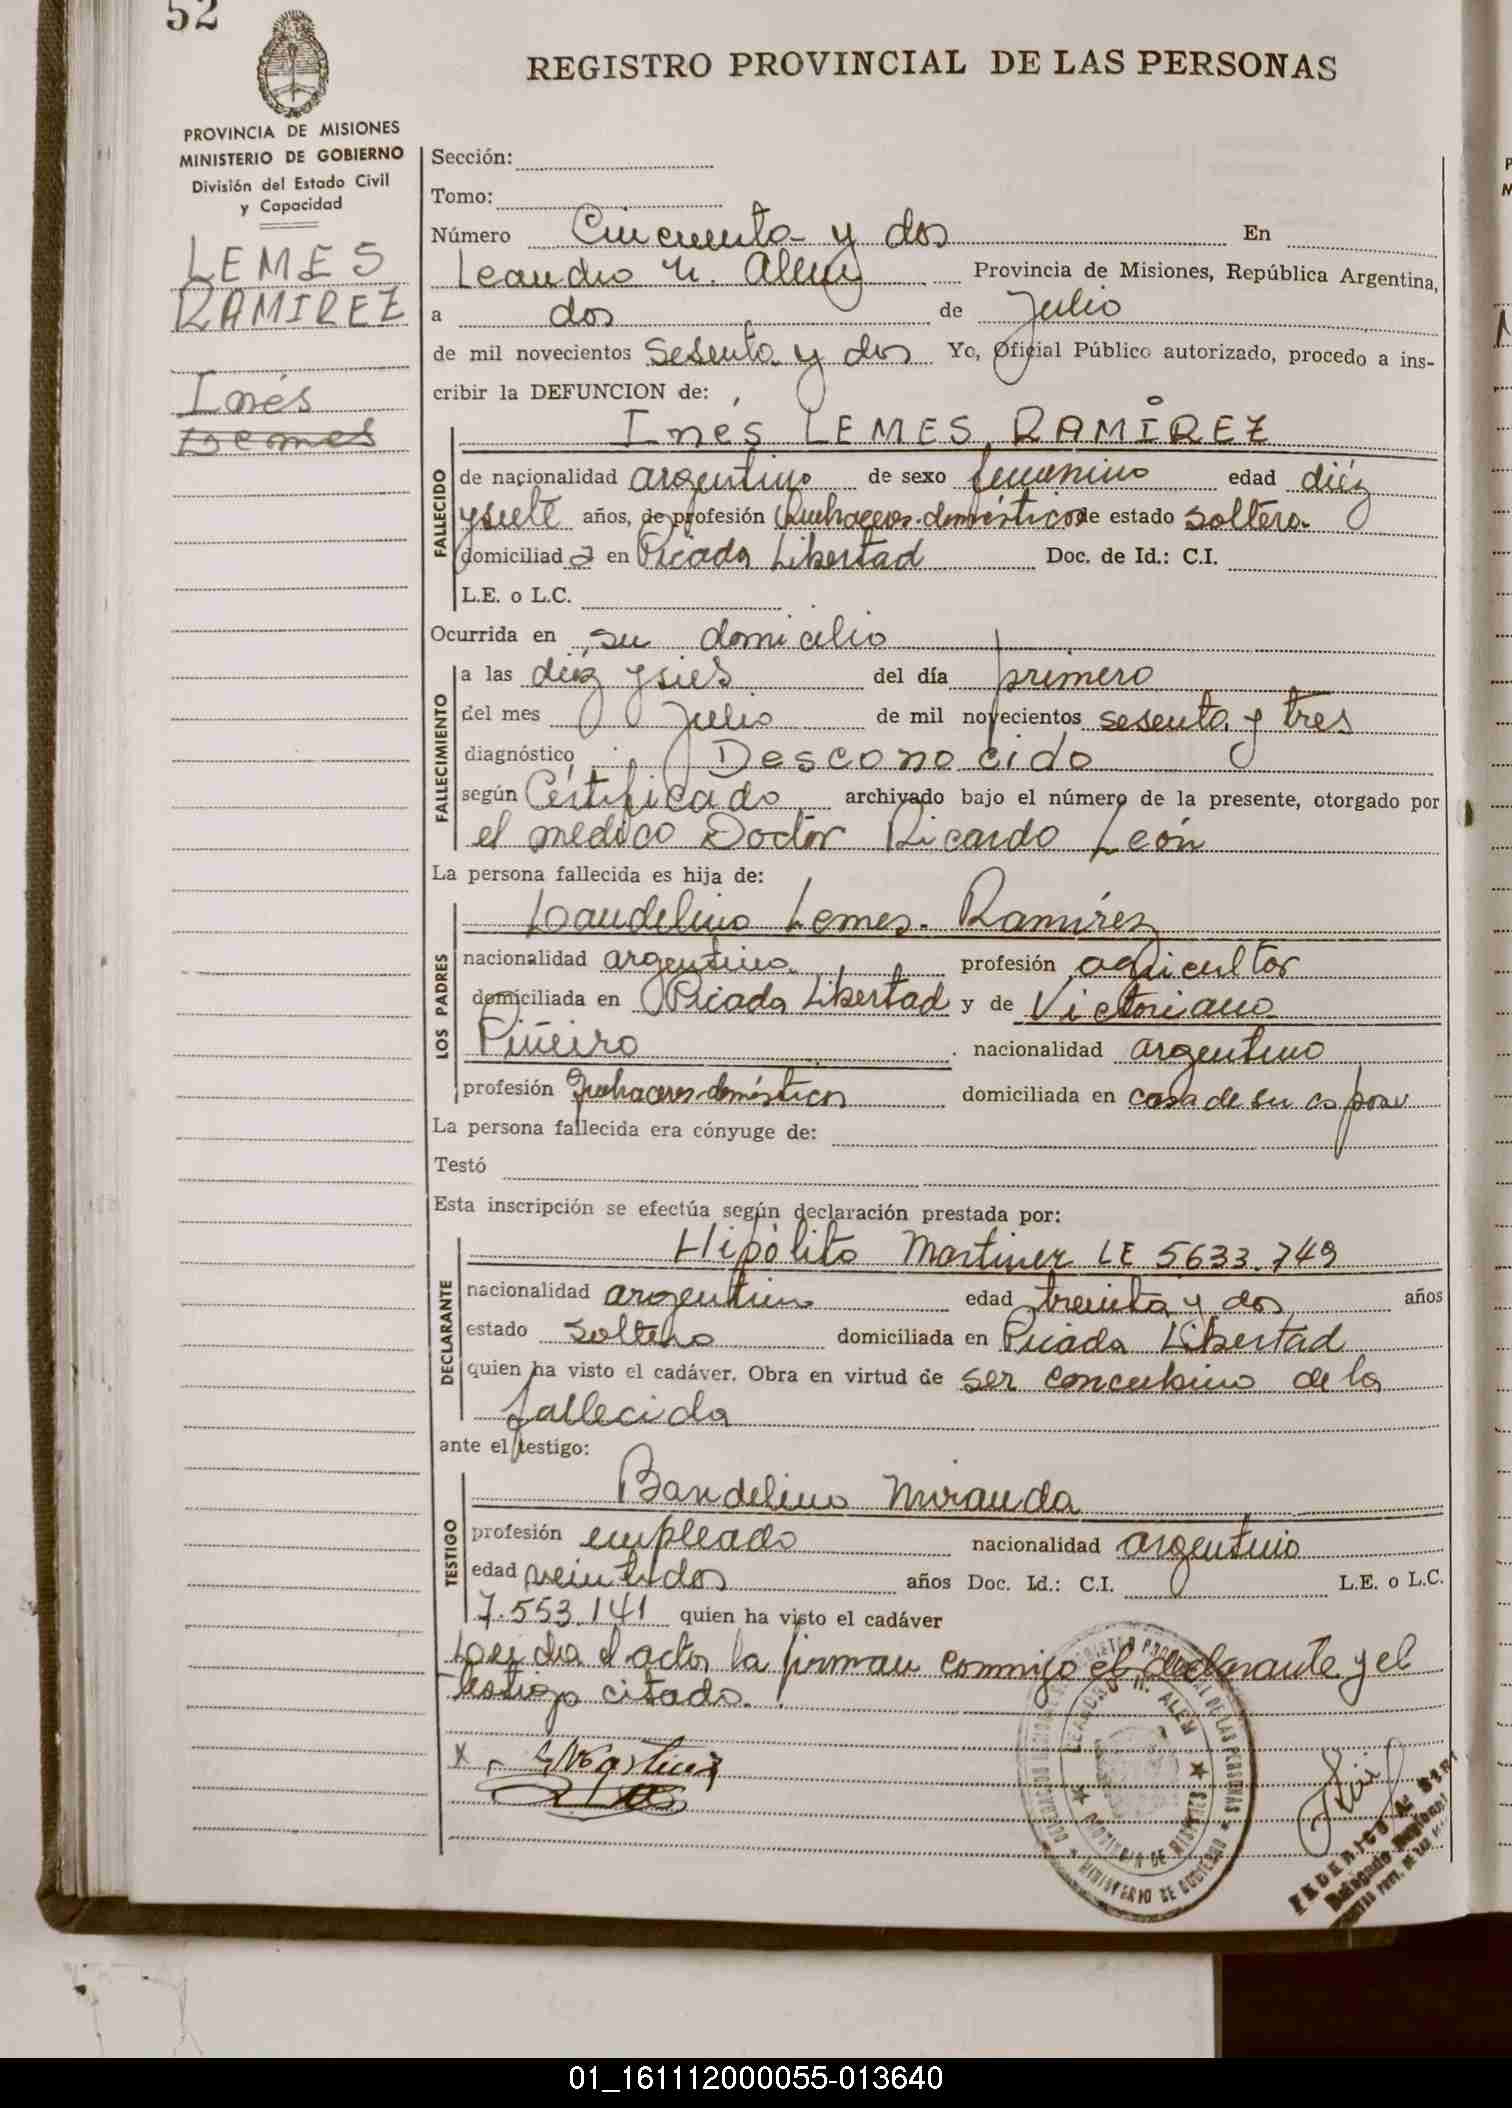 52
REGISTRO PROVINCIAL DE LAS PERSONAS
PROVINCIA DE MISIONES
MINISTERIO DE GOBIERNO
División del Estado Civil
y Capacidad
LEMES
RAMIREZ
Inés
Lemes
Sección:
Tomo:
Número Cincuenta y dos En
Leandro N. Alem Provincia de Misiones, República Argentina,
a dos de Julio
de mil novecientos sesenta y dos Yo, Oficial Público autorizado, procedo a ins-
cribir la DEFUNCION de:
Inés LEMES RAMÍREZ
FALLECIDO
de nacionalidad argentino de sexo femenino edad diéz
y siete años, de profesión Quehaceres domésticos de estado soltera
domiciliad a en Picada Libertad Doc. de Id.: C.I.
L.E. o L.C.
Ocurrida en su domicilio
FALLECIMIENTO
a las diéz y sies del día primero
del mes Julio de mil novecientos sesenta y tres
diagnóstico Desconocido
según Certificado archivado bajo el número de la presente, otorgado por
el médico Doctor Ricardo León
La persona fallecida es hija de:
LOS PADRES
Laudelino Lemes Ramírez
nacionalidad argentino profesión agricultor
domiciliada en Picada Libertad y de Victoriana
Piñeiro nacionalidad argentino
profesión Quehaceres domésticos domiciliada en casa de su esposo
La persona fallecida era cónyuge de:
Testó
Esta inscripción se efectúa según declaración prestada por:
DECLARANTE
Hipólito Martinez LE 5633.749
nacionalidad argentino edad treinta y dos años
estado soltero domiciliada en Picada Libertad
quien ha visto el cadáver. Obra en virtud de ser concubino de la
fallecida
ante el testigo:
TESTIGO
Bandelino Miranda
profesión empleado nacionalidad argentino
edad veintidos años Doc. Id.: C.I. L.E. o L.C.
7.553.141 quien ha visto el cadáver
Leida el acta la firman conmigo el declarante y el
testigo citado.
LEANDRO N. ALEM
PROVINCIA DE MISIONES
MINISTERIO DE GOBIERNO
FEDERICO A.
Delegado Regional
01_161112000055-013640